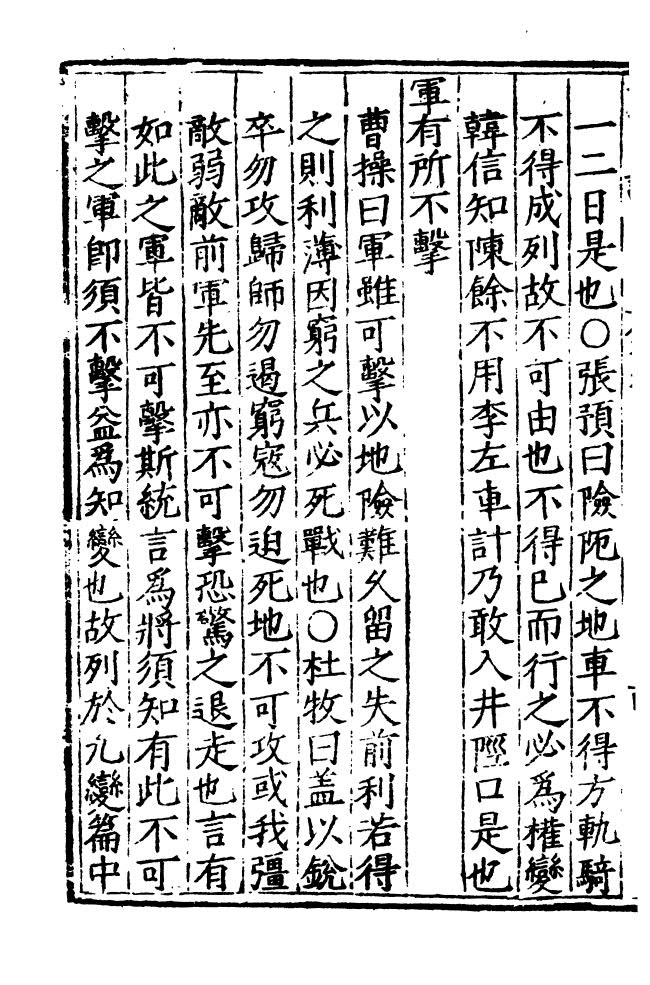 一二日是也○張預曰險阨之地車不得方軌騎
不得成列故不可由也不得已而行之必為權變
韓信知陳餘不用李左車計乃敢入井陘口是也
軍有所不擊
曹操曰軍雖可擊以地險難久留之失前利若得
之則利薄因窮之兵必死戰也○杜牧曰盖以銳
卒勿攻歸師勿遏窮寇勿迫死地不可攻或我彊
敵弱敵前軍先至亦不可擊恐驚之退走也言有
如此之軍皆不可擊斯統言為將須知有此不可
擊之軍卽須不擊益為知變也故列於九變篇中